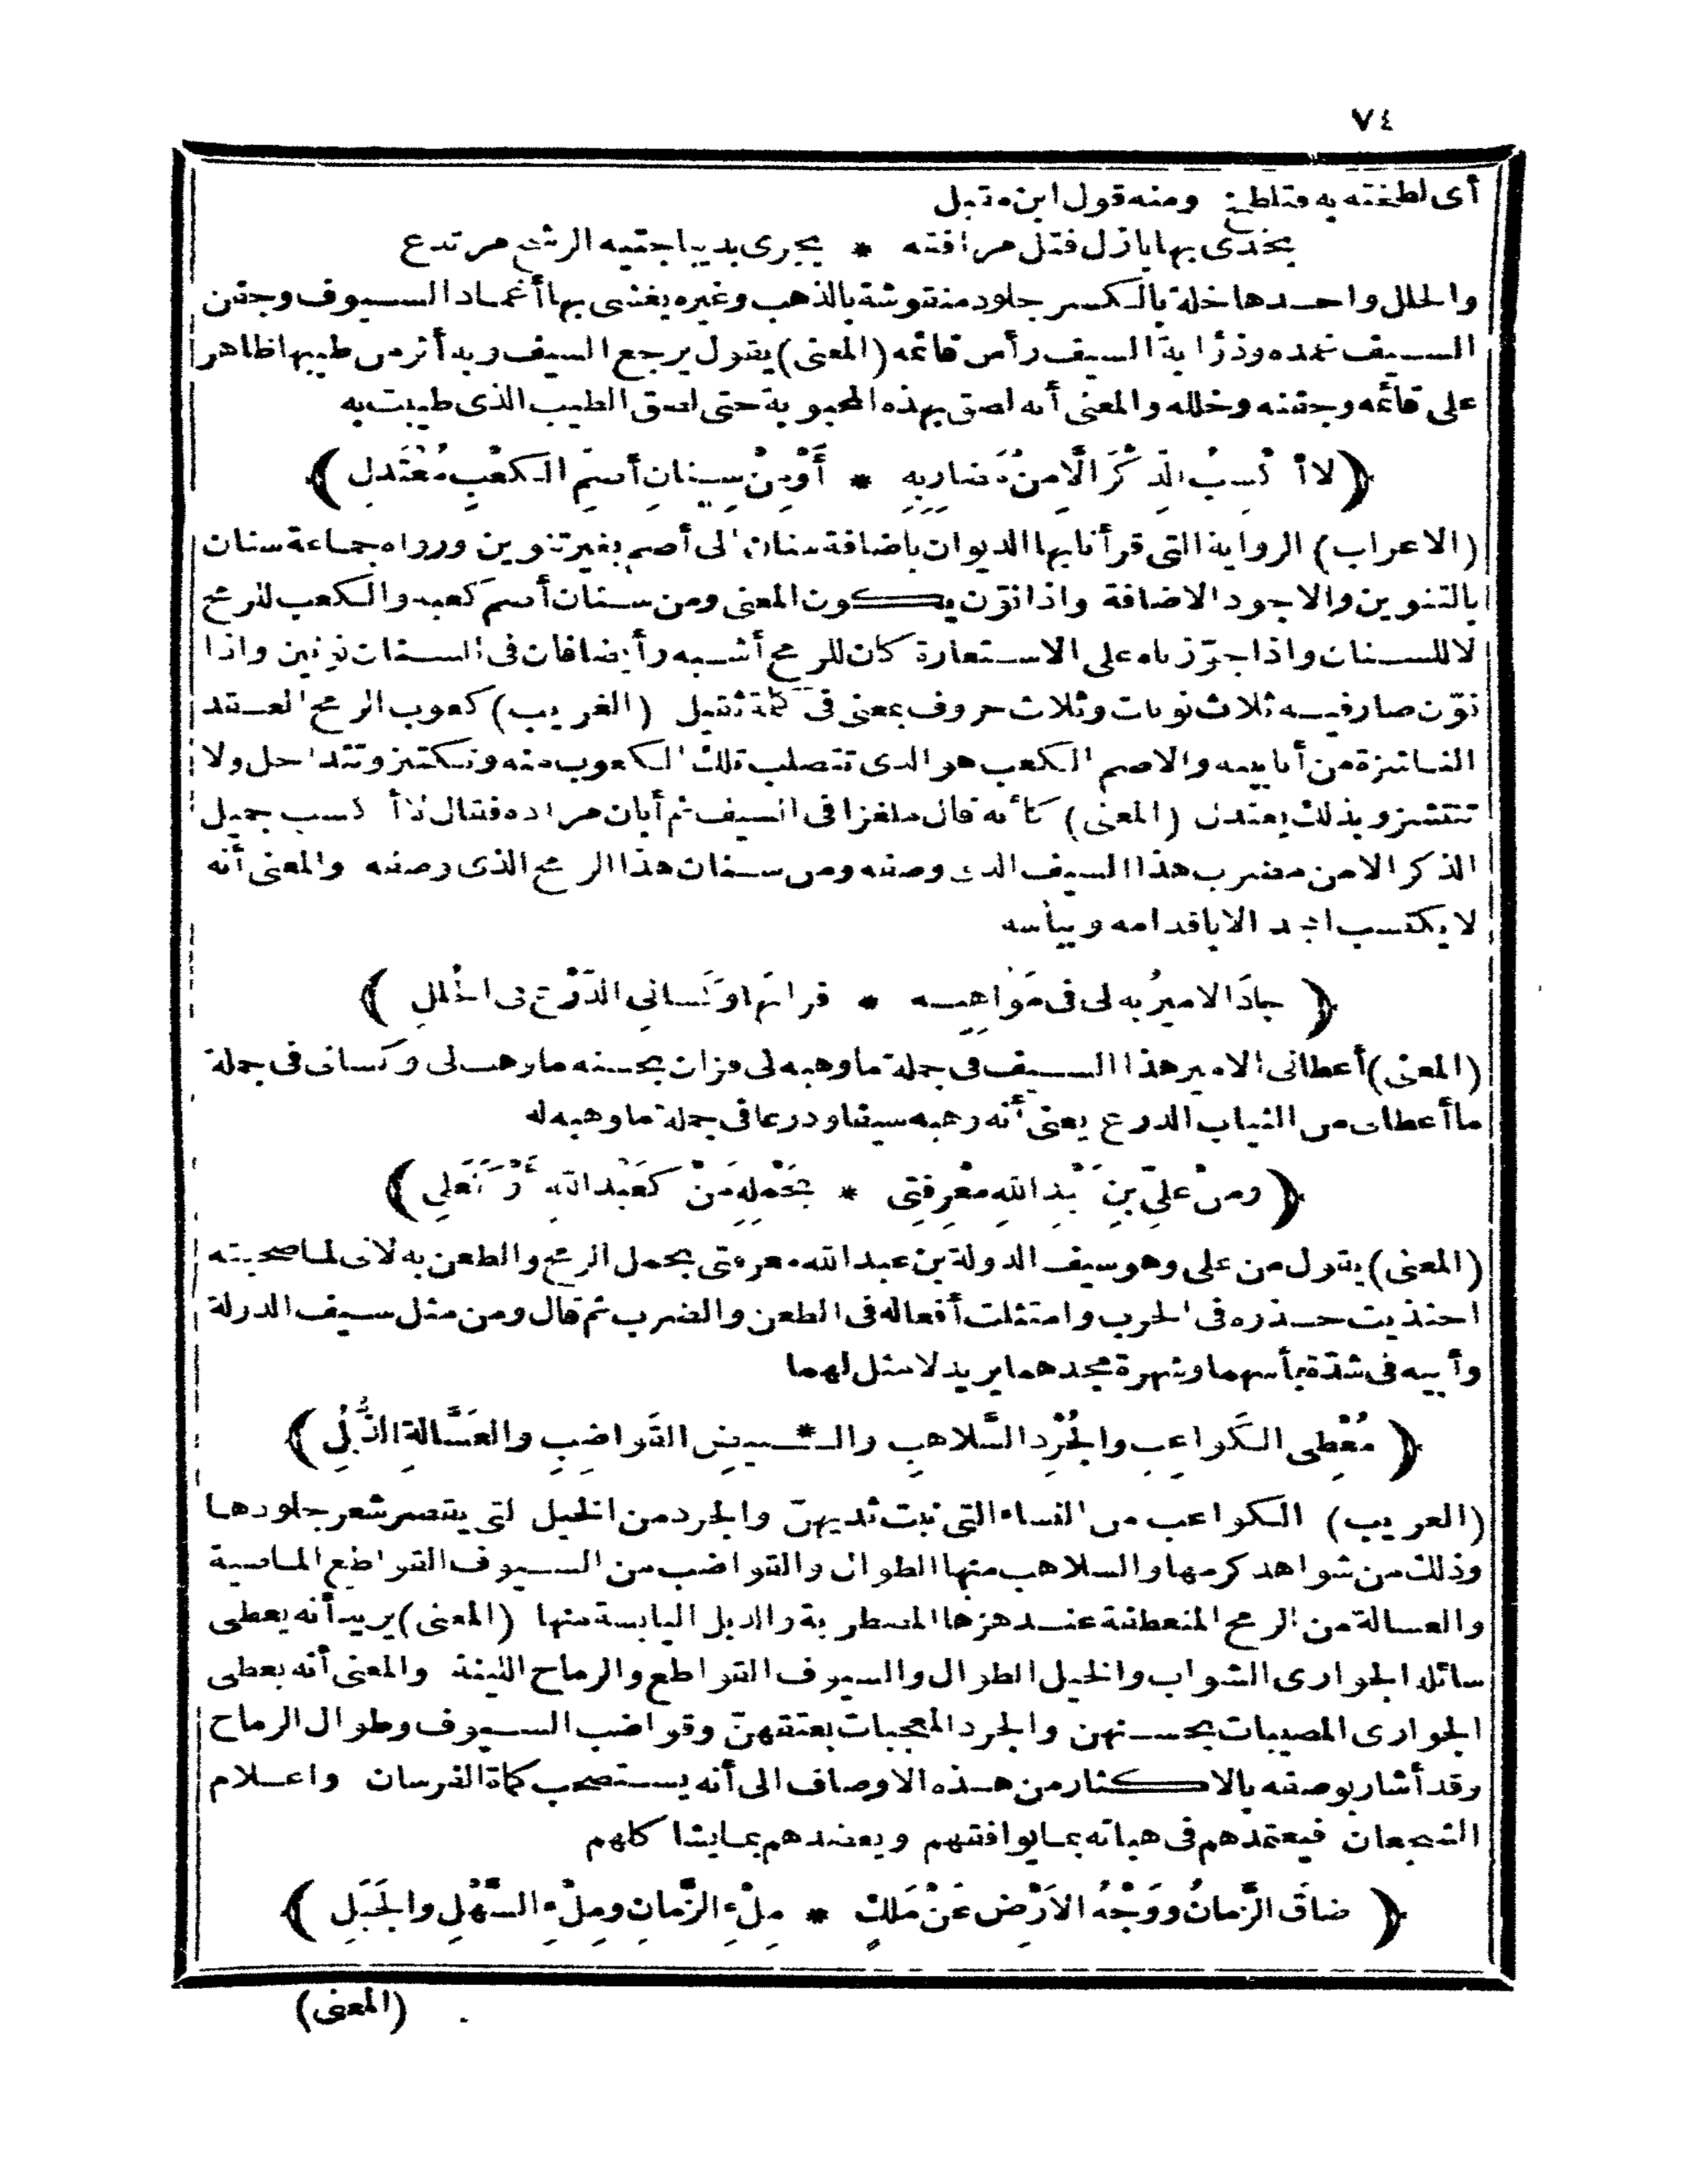 ٧٤
أى لطخته به فتلطخ ومنه قول ابن مقبل
يخدى بها بازل فتل مرافقه * يجرى بديباجتيه الرشح مرتدع
والخلل واحدها خلة بالكسر جلود منقوشة بالذهب وغيره يغشى بها أغماد السيوف وجفن
السيف غمده وذؤابة السيف رأس قائمه (المعنى) يقول يرجع السيف وبه أثر من طيبها ظاهر
على قائمه وجفنه وخلله والمعنى أنه لصق بهذه المحبوبة حتى لصق الطيب الذى طيبت به
﴿ لا أكْسِبُ الذِّكْرَ الَّا مِنْ مَضَارِبِهِ * أَوْ مِنْ سِنَانِ أَصَمِّ الكَعْبِ مُعْتَدِلِ ﴾
(الاعراب) الرواية التى قرأنا بها الديوان باضافة سنان الى أصم بغير تنوين ورواه جماعة سنان
بالتنوين والاجود الاضافة واذا نوّن يكون المعنى ومن سنان أصم كعبه والكعب للرمح
لا للسنان واذا جوّزناه على الاستعارة كان للرمح أشبه وأيضا فان فى السنان نونين واذا
نوّن صار فيه ثلاث نونات وثلاث حروف بمعنى فى كلمة ثقيل (الغريب) كعوب الرمح العقد
الناشزة من أنابيبه والاصم الكعب هو الذى تتصلب تلك الكعوب منه وتكتنز وتتداخل ولا
تنتشز وبذلك يعتدل (المعنى) كأنه قال ملغزا فى السيف ثم أبان مراده فقال لا أكسب جميل
الذكر الا من مضرب هذا السيف الذى وصفه ومن سنان هذا الرمح الذى وصفه والمعنى أنه
لا يكتسب المجد الا باقدامه وببأسه
﴿ جادَ الاميرُ به لى فى مَوَاهِبِه * فزانَها وكَسانِى الدّرْعَ فى الحُلَلِ ﴾
(المعنى) أعطانى الامير هذا السيف فى جملة ما وهبه لى فزان بحسنه ما وهب لى وكسانى فى جملة
ما أعطانى من الثياب الدرع يعنى أنه وهبه سيفا ودرعا فى جملة ما وهبه له
﴿ ومنْ عَلىِّ بنِ عَبْدِ اللهِ مَعْرِفَتِى * بِحَمْلِهِ مَنْ كَعَبْدِ اللهِ أَوْ كَعَلِى ﴾
(المعنى) يقول من على وهو سيف الدولة بن عبد الله معرفتى بحمل الرمح والطعن به لانى لما صحبته
احتذيت حذوه فى الحرب وامتثلت أفعاله فى الطعن والضرب ثم قال ومن مثل سيف الدولة
وأبيه فى شدّة بأسهما وشهرة مجدهما يريد لا مثل لهما
﴿ مُعْطِى الكَواعِبِ والجُرْدِ السَّلاهِبِ والـ * ـبيضِ القَواضِبِ والعَسَّالةِ الذُّبُلِ ﴾
(الغريب) الكواعب من النساء التى نبت ثديهنّ والجرد من الخيل التى يقصر شعر جلودها
وذلك من شواهد كرمها والسلاهب منها الطوال والقواضب من السيوف القواطع الماضية
والعسالة من الرمح المنعطفة عند هزها المضطربة والذبل اليابسة منها (المعنى) يريد أنه يعطى
سائله الجوارى الشواب والخيل الطوال والسيوف القواطع والرماح اللينة والمعنى أنه يعطى
الجوارى المصيبات بحسنهن والجرد المعجبات بعتقهنّ وقواضب السيوف وطوال الرماح
وقد أشار بوصفه بالاكثار من هذه الاوصاف الى أنه يستصحب كماة الفرسان واعلام
الشجعان فيعتمدهم فى هباته بما يوافقهم ويعضدهم بما يشاكلهم
﴿ ضاقَ الزَّمانُ ووَجْهُ الاَرْضِ عَنْ مَلِكٍ * مِلْءِ الزَّمانِ ومِلْءِ السَّهْلِ والجَبَلِ ﴾
(المعنى)